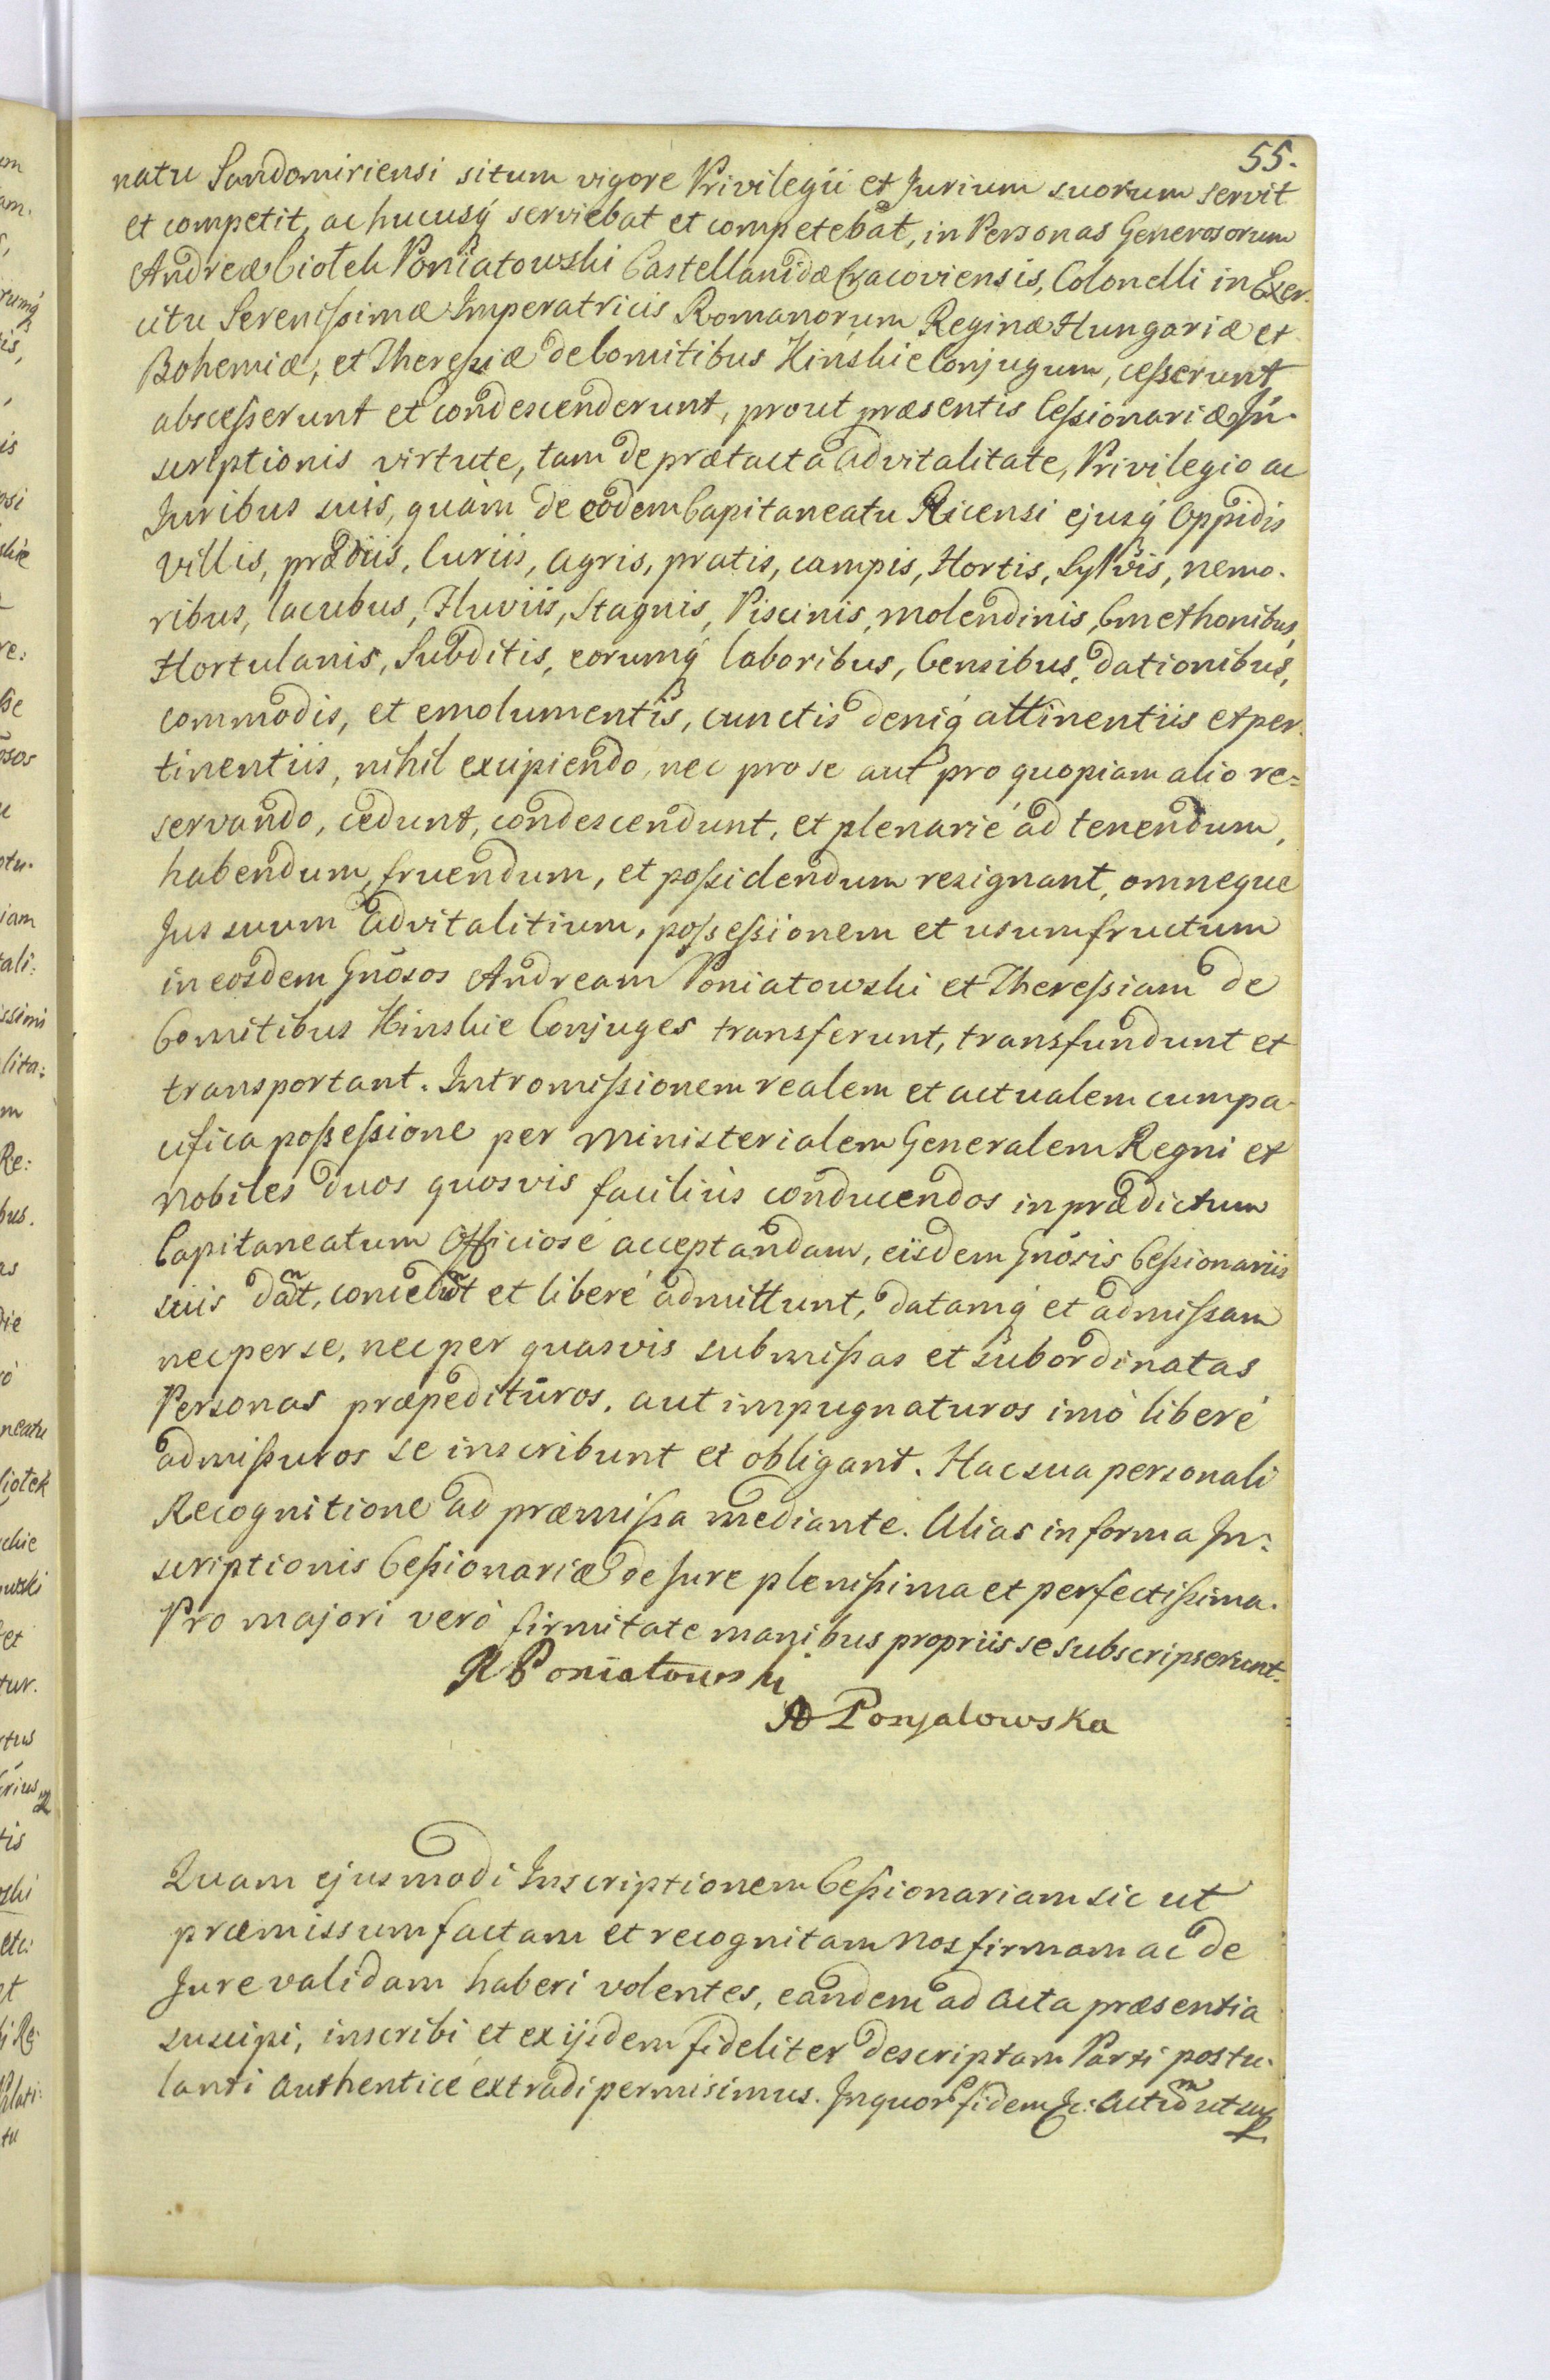 55.
natu Sandomiriensi situm vigore Privilegii et Jurium suorum servit
et competit, ac hucusq serviebat et competebat, in Personas Generosorum
Andreæ Ciołek Poniatowski Castellanidæ Cracoviensis, Colonelli in Exer-
citu Serenißimæ Imperatricis Romanorum Reginæ Hungariæ et
Bohemiæ, et Thereßiæ de Comitibus Kinskie Conjugum, ceßerunt
absceßerunt et condescenderunt, prout præsentis Ceßionariæ In-
scriptionis virtute, tam de prætacta advitalitate, Privilegio ac
Juribus suis, quàm de eodem Capitaneatu Ricensi ejusq Oppidis
Villis, prædiis, Curiis, agris, pratis, campis, Hortis, Sylvis, nemo-
ribus, lacubus, Fluviis, Stagnis, Piscinis, molendinis, Cmethonibus,
Hortulanis, Subditis, eorumq laboribus, Censibus, dationibus,
commodis, et emolumentis, cunctis deniq attinentiis et per-
tinentiis, nihil excipiendo, nec pro se aut pro quopiam alio re=
servando, cedunt, condescendunt, et plenarié ad tenendum,
habendum, fruendum, et poßidendum resignant, omneque
Jus suum advitalitium, poßeßionem et usumfructum
in eosdem Gnõsos Andream Poniatowski et Thereßiam de
Comitibus Kinskie Conjuges transferunt, transfundunt et
transportant. Intromißionem realem et actualem cum pa-
cifica poßeßione per Ministerialem Generalem Regni et
Nobiles duos quosvis faciliùs conducendos in prædictum
Capitaneatum Officiosé acceptandam, eisdem Gnõsis Ceßionariis
suis dant, concedunt et liberé admittunt, datamq et admißam
nec per se, nec per quasvis submißas et subordinatas
Personas præpedituros, aut impugnaturos imò liberé
admißuros se inscribunt et obligant. Hac sua personali
Recognitione ad præmißa mediante. Alias in forma In-
scriptionis Ceßionariæ de Jure plenißima et perfectißima.
Pro majori verò firmitate manibus propriis se subscripserunt.
Poniatowski
Ponjatowska
Quam ejusmodi Inscriptionem Ceßionariam sic ut
præmissum factam et recognitam Nos firmam ac de
Jure validam haberi volentes, eandem ad Acta præsentia
suscipi, inscribi et ex ijsdem fideliter descriptam Parti postu-
lanti Authenticé extradi permisimus. In quor fidem &c: Actum ut sup